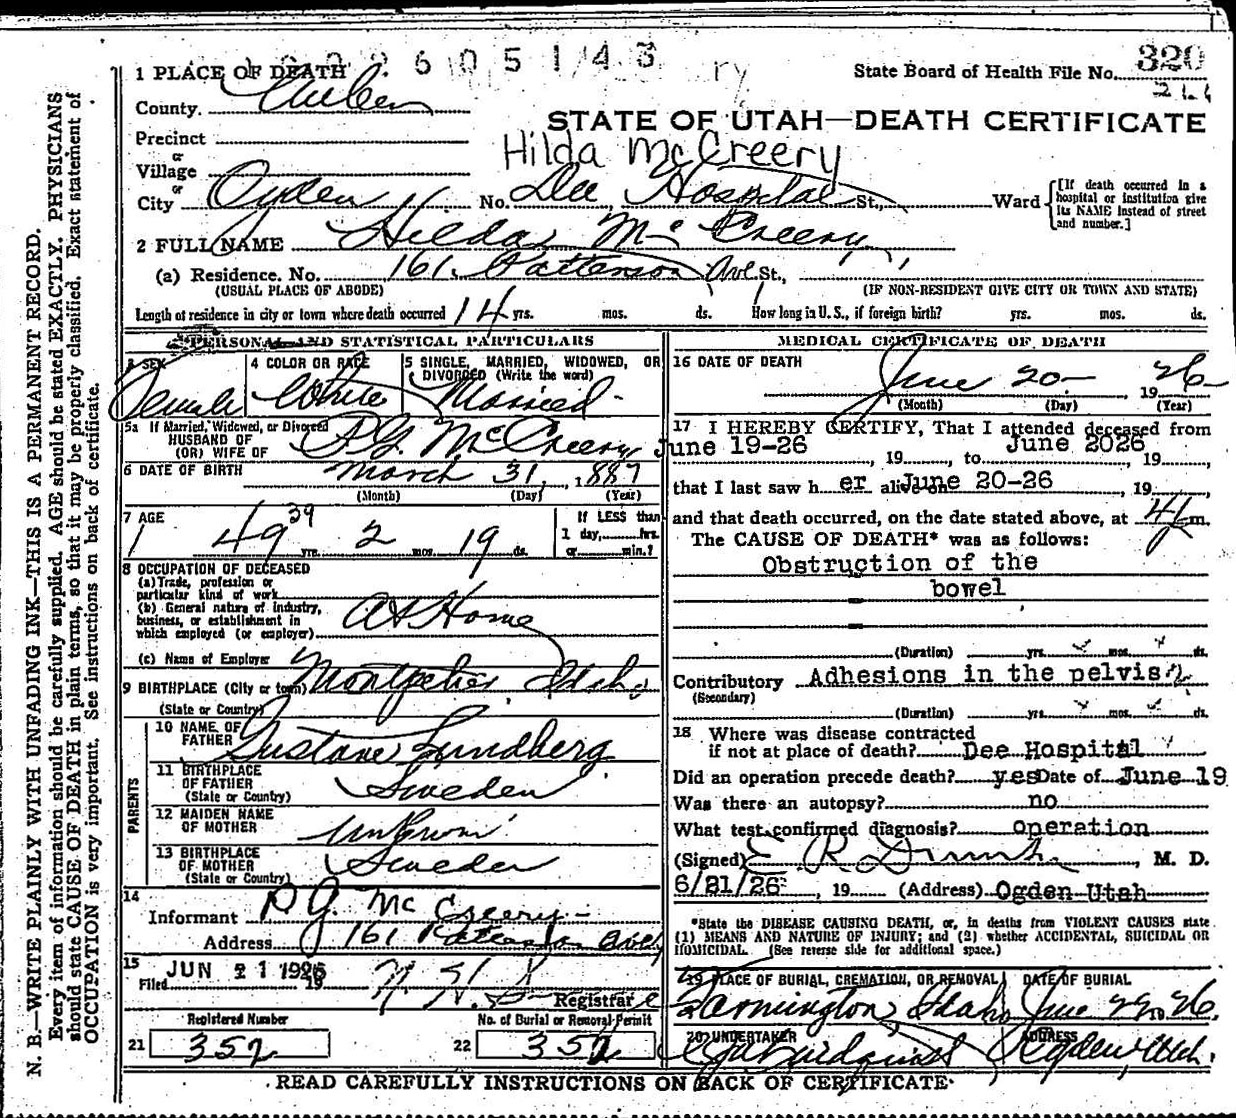 N. B.—WRITE PLAINLY WITH UNFADING INK—THIS IS A PERMANENT RECORD.
Every item of information should be carefully supplied. AGE should be stated EXACTLY. PHYSICIANS
should state CAUSE OF DEATH in plain terms, so that it may be properly classified. Exact statement of
OCCUPATION is very important. See instructions on back of certificate.
6 0 5 1 4 3
1 PLACE OF DEATH
State Board of Health File No. 320
County. Weber
STATE OF UTAH—DEATH CERTIFICATE
Precinct
Hilda McCreery
or
Village
or
City Ogden No. Dee Hospital St., Ward
[If death occurred in a
hospital or institution give
its NAME instead of street
and number.]
2 FULL NAME Hilda McCreery
(a) Residence. No. 161 Patterson Ave St.,
(USUAL PLACE OF ABODE) (IF NON-RESIDENT GIVE CITY OR TOWN AND STATE)
Length of residence in city or town where death occurred 14 yrs. mos. ds. How long in U. S., if foreign birth? yrs. mos. ds.
PERSONAL AND STATISTICAL PARTICULARS
3 SEX 4 COLOR OR RACE 5 SINGLE, MARRIED, WIDOWED, OR
DIVORCED (Write the word)
Female White Married
5a If Married, Widowed, or Divorced
HUSBAND OF
(OR) WIFE OF P.G. McCreery
6 DATE OF BIRTH March 31, 1887
(Month) (Day) (Year)
7 AGE If LESS than
39
49 yrs. 2 mos. 19 ds. 1 day, hrs.
or min.?
8 OCCUPATION OF DECEASED
(a) Trade, profession or
particular kind of work
(b) General nature of industry,
business, or establishment in
which employed (or employer) At Home
(c) Name of Employer
9 BIRTHPLACE (City or town) Montpelier, Idaho
(State or Country)
PARENTS
10 NAME OF
FATHER Gustave Lundberg
11 BIRTHPLACE
OF FATHER Sweden
(State or Country)
12 MAIDEN NAME
OF MOTHER Unknown
13 BIRTHPLACE
OF MOTHER Sweden
(State or Country)
14
Informant P G. McCreery
Address 161 Patterson
15
Filed JUN 21 1926 19 Registrar
Registered Number No. of Burial or Removal Permit
21 352 22 352
MEDICAL CERTIFICATE OF DEATH
16 DATE OF DEATH
June 20 1926
(Month) (Day) (Year)
17 I HEREBY CERTIFY, That I attended deceased from
June 19-26, 19, to June 2026, 19,
that I last saw her alive on June 20-26, 19,
and that death occurred, on the date stated above, at m.
The CAUSE OF DEATH* was as follows:
Obstruction of the
bowel
(Duration) yrs. mos. ds.
Contributory Adhesions in the pelvis
(Secondary)
(Duration) yrs. mos. ds.
18 Where was disease contracted
if not at place of death? Dee Hospital
Did an operation precede death? yes Date of June 19
Was there an autopsy? no
What test confirmed diagnosis? operation
(Signed) E R, M. D.
6/21/26, 19 (Address) Ogden Utah
*State the DISEASE CAUSING DEATH, or, in deaths from VIOLENT CAUSES state
(1) MEANS AND NATURE OF INJURY; and (2) whether ACCIDENTAL, SUICIDAL OR
HOMICIDAL. (See reverse side for additional space.)
19 PLACE OF BURIAL, CREMATION, OR REMOVAL DATE OF BURIAL
Idaho June 26
20 UNDERTAKER ADDRESS
Ogden, Utah.
READ CAREFULLY INSTRUCTIONS ON BACK OF CERTIFICATE